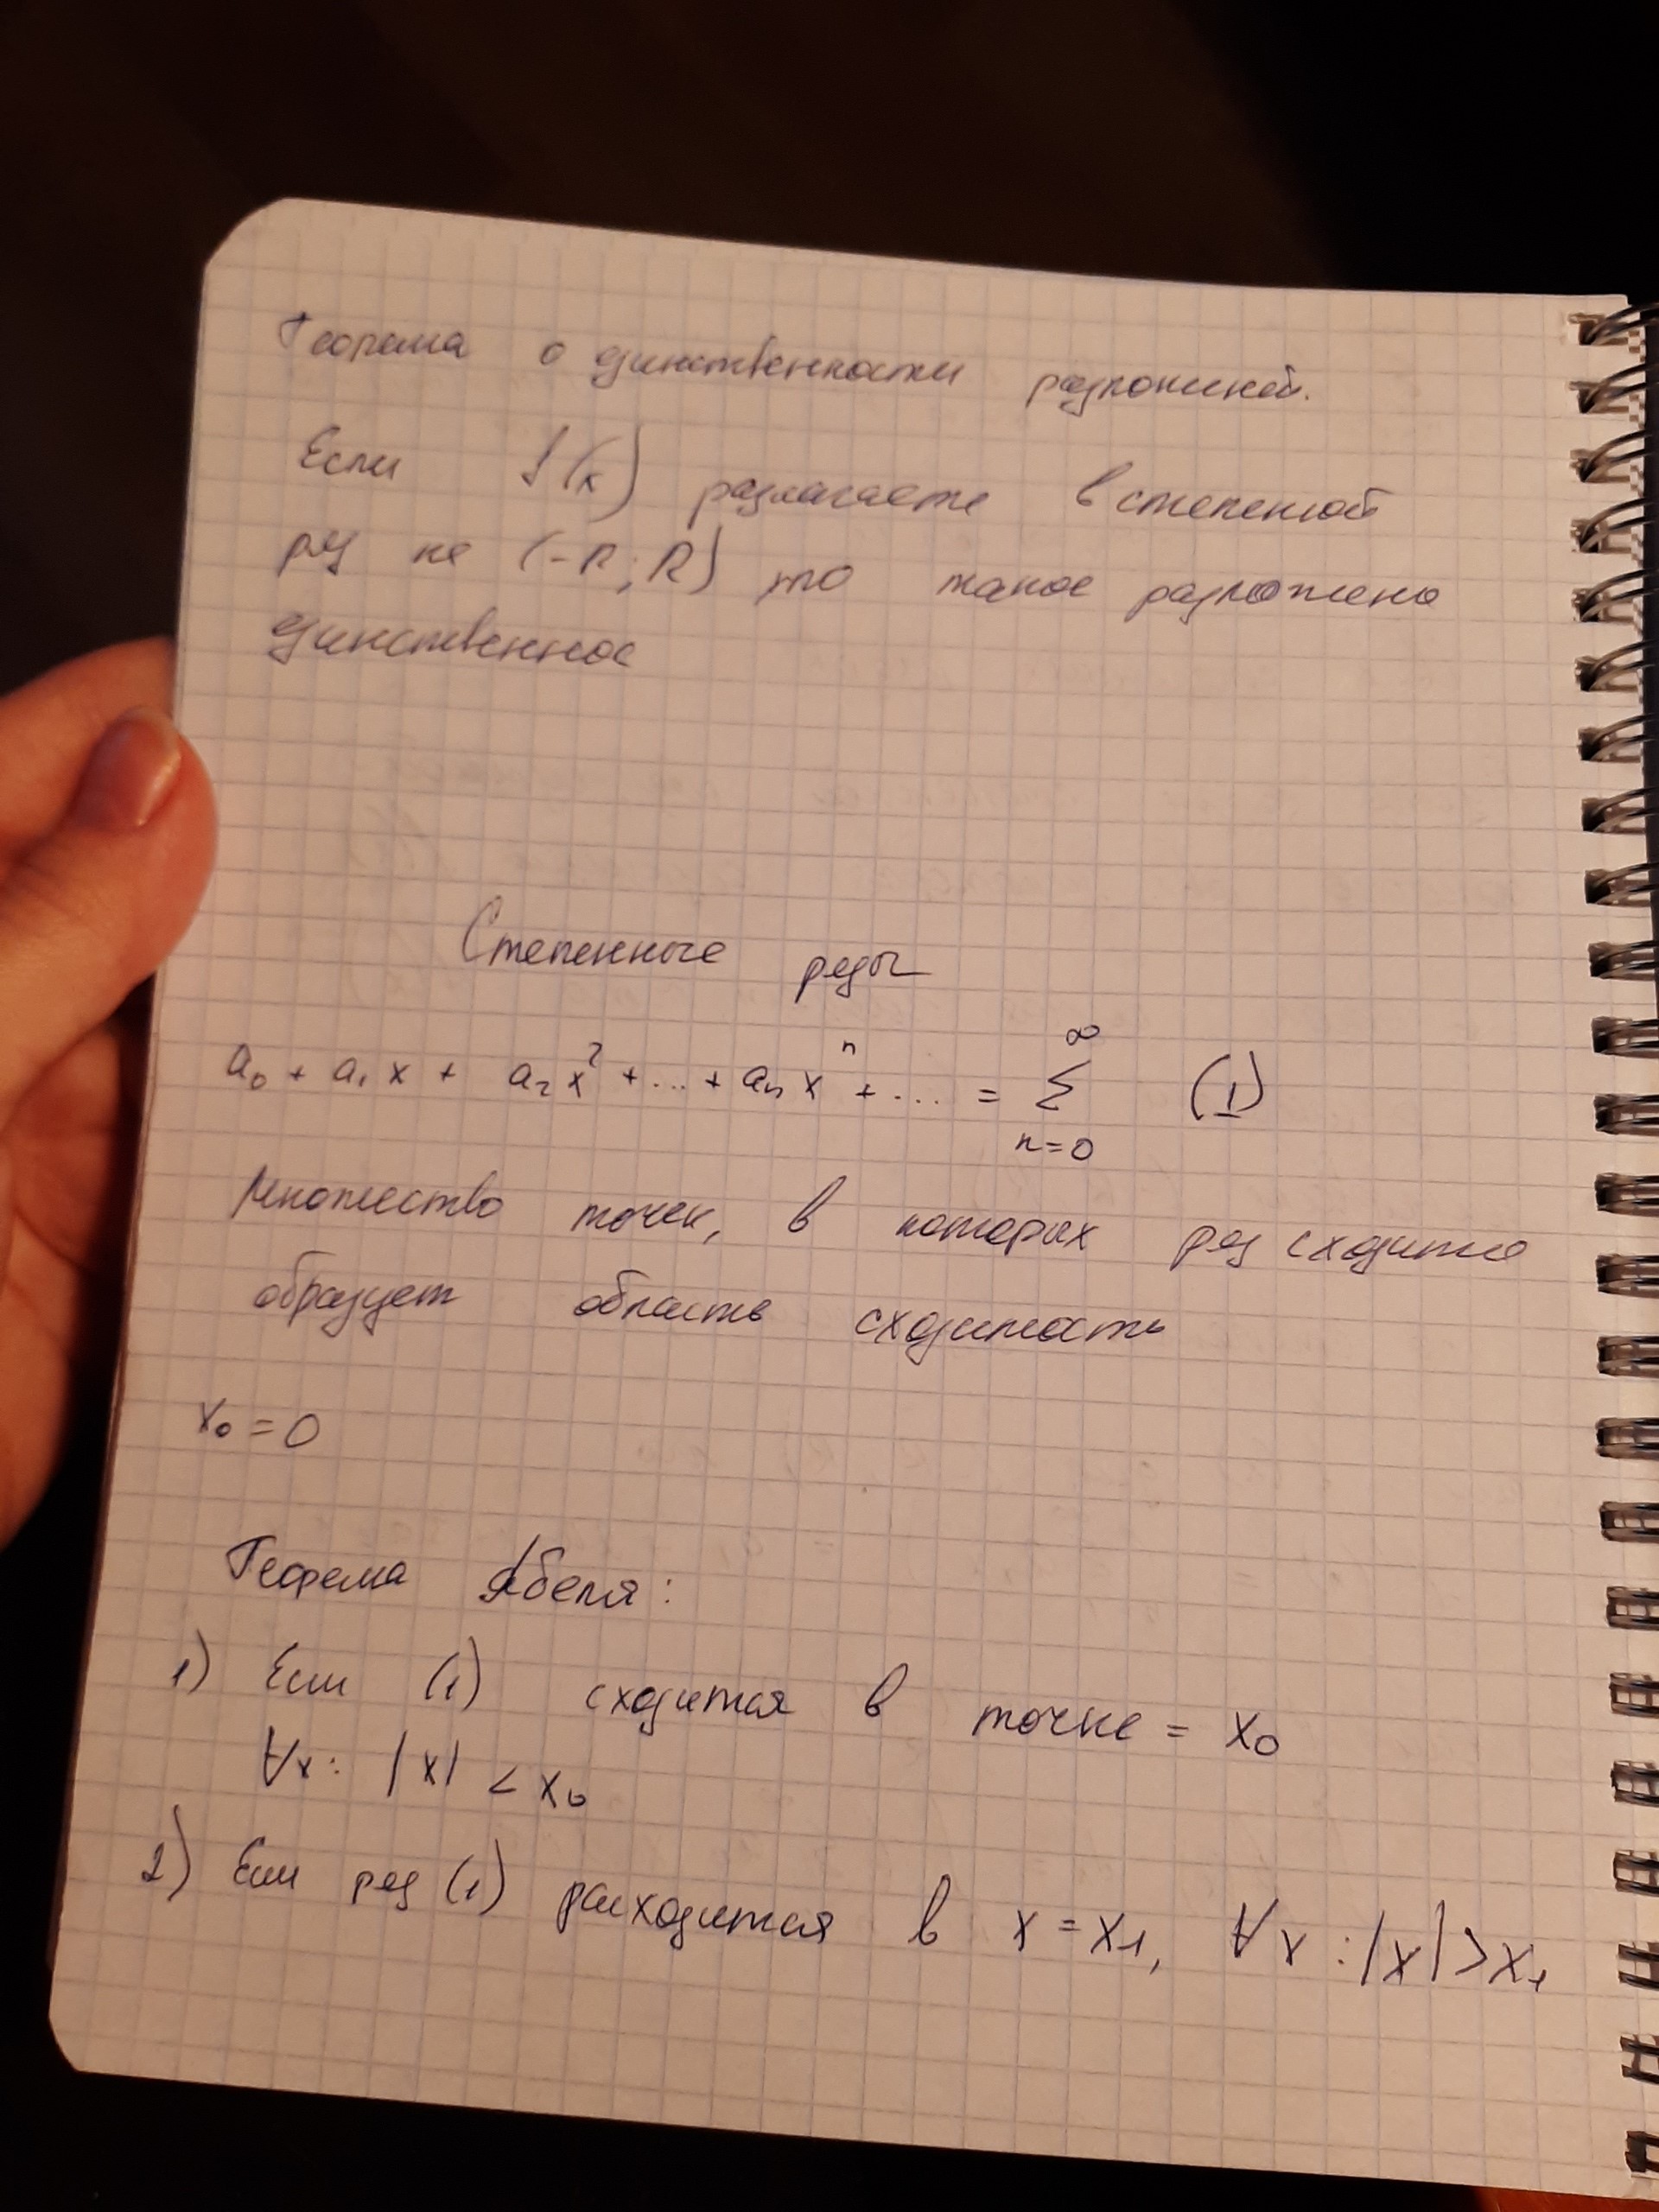 Теорема о единственности разложений.
Если f(x) разлагаете в степеной
ряд на (-R; R) то такое разложено
единственное
Степенные ряды
a₀ + a₁ x + a₂ x² + ... + aₙ xⁿ + ... = ∑ₙ₌₀^∞ (1)
Множество точек, в которых ряд сходится
образует область сходимость
x₀ = 0
Теорема Абеля:
1) Если (1) сходится в точке = x₀
∀x: |x| < x₀
2) Если ряд (1) расходится в x = x₁, ∀x : |x| > x₁